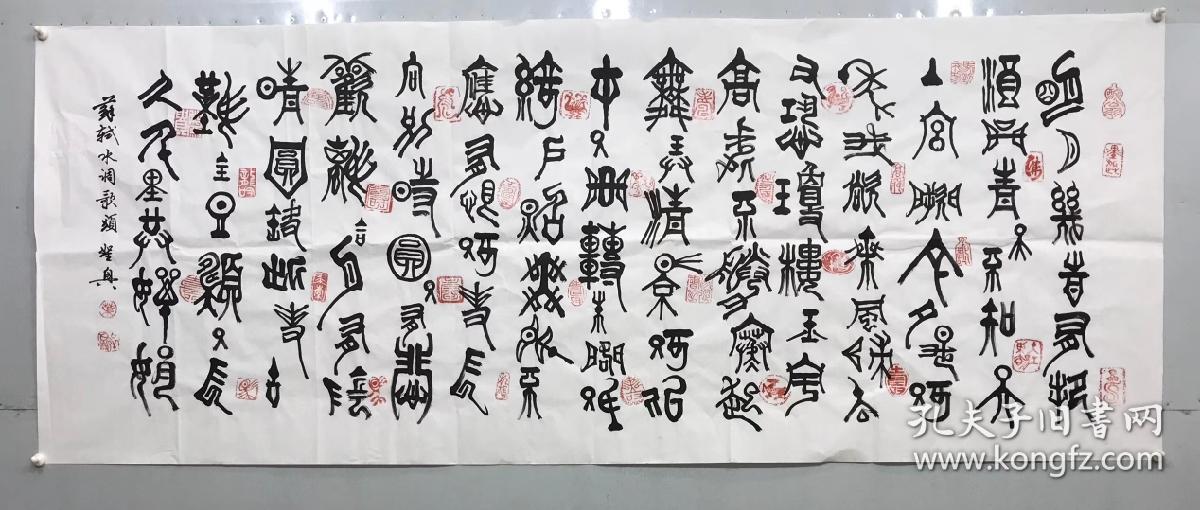 明月幾時有把
酒問青天不知天
上宮闕今夕是何
年我欲乘風歸去
又恐瓊樓玉宇
高處不勝寒起
舞弄清影何似
在人間轉朱閣低
綺戶照無眠不
應有恨何事長
向別時圓人有悲
歡離合月有陰
晴圓缺此事古
難全但願人長
久千里共嬋娟
蘇軾水调歌頭
孔夫子旧书网
www.kongfz.com